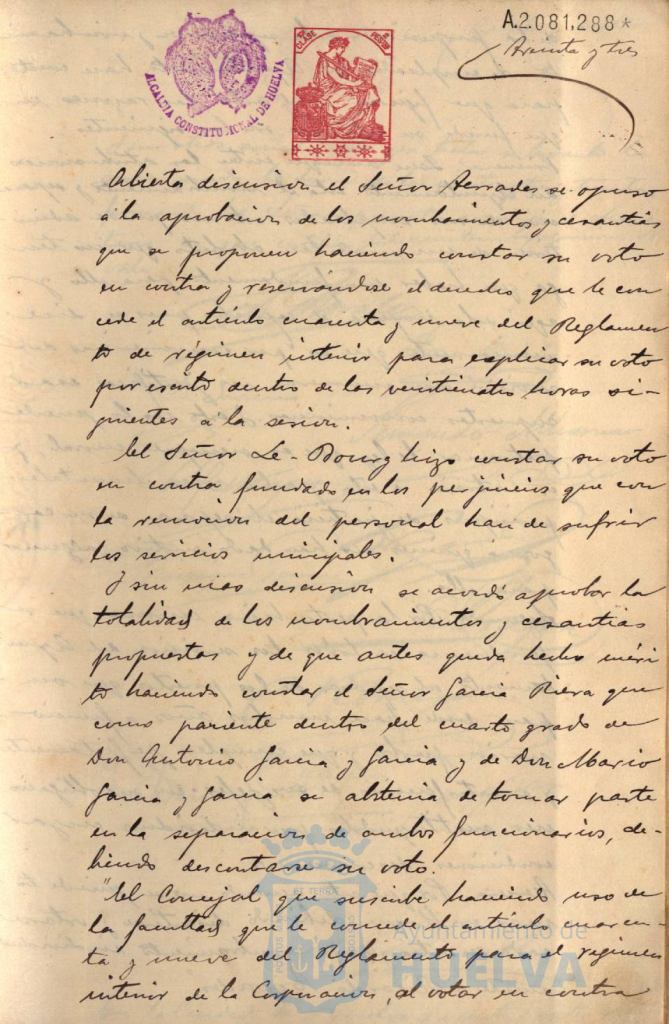 A.2.081,288*
Treinta y tres
ALCALDIA CONSTITUCIONAL DE HUELVA
CLASE
Abierta discusion el Señor Terrades se opuso
á la aprobacion de los nombramientos y cesantías
que se proponen haciendo constar su voto
en contra y reservandose el derecho que le con
cede el artículo cuarenta y nueve del Reglamen
to de régimen interior para explicar su voto
por escrito dentro de las veinticuatro horas si-
guientes á la sesion.
El Señor Le-Bourg hizo constar su voto
en contra fundado en los perjuicios que con
la remocion del personal han de sufrir
los servicios municipales.
Y sin mas discusion se acordó aprobar la
totalidad de los nombramientos y cesantias
propuestas y de que antes queda hecho méri
to haciendo constar el Señor Garcia Riera que
como pariente dentro del cuarto grado de
Don Antonio Garcia y Garcia y de Don Mario
Garcia y Garcia se abstenia de tomar parte
en la separacion de ambos funcionarios, de-
biendo descontarse su voto.
"El Concejal que suscribe haciendo uso de
la facultad que le concede el artículo cuaren-
ta y nueve del Reglamento para el régimen
interior de la Corporacion, al votar en contra
Ayuntamiento de
HUELVA